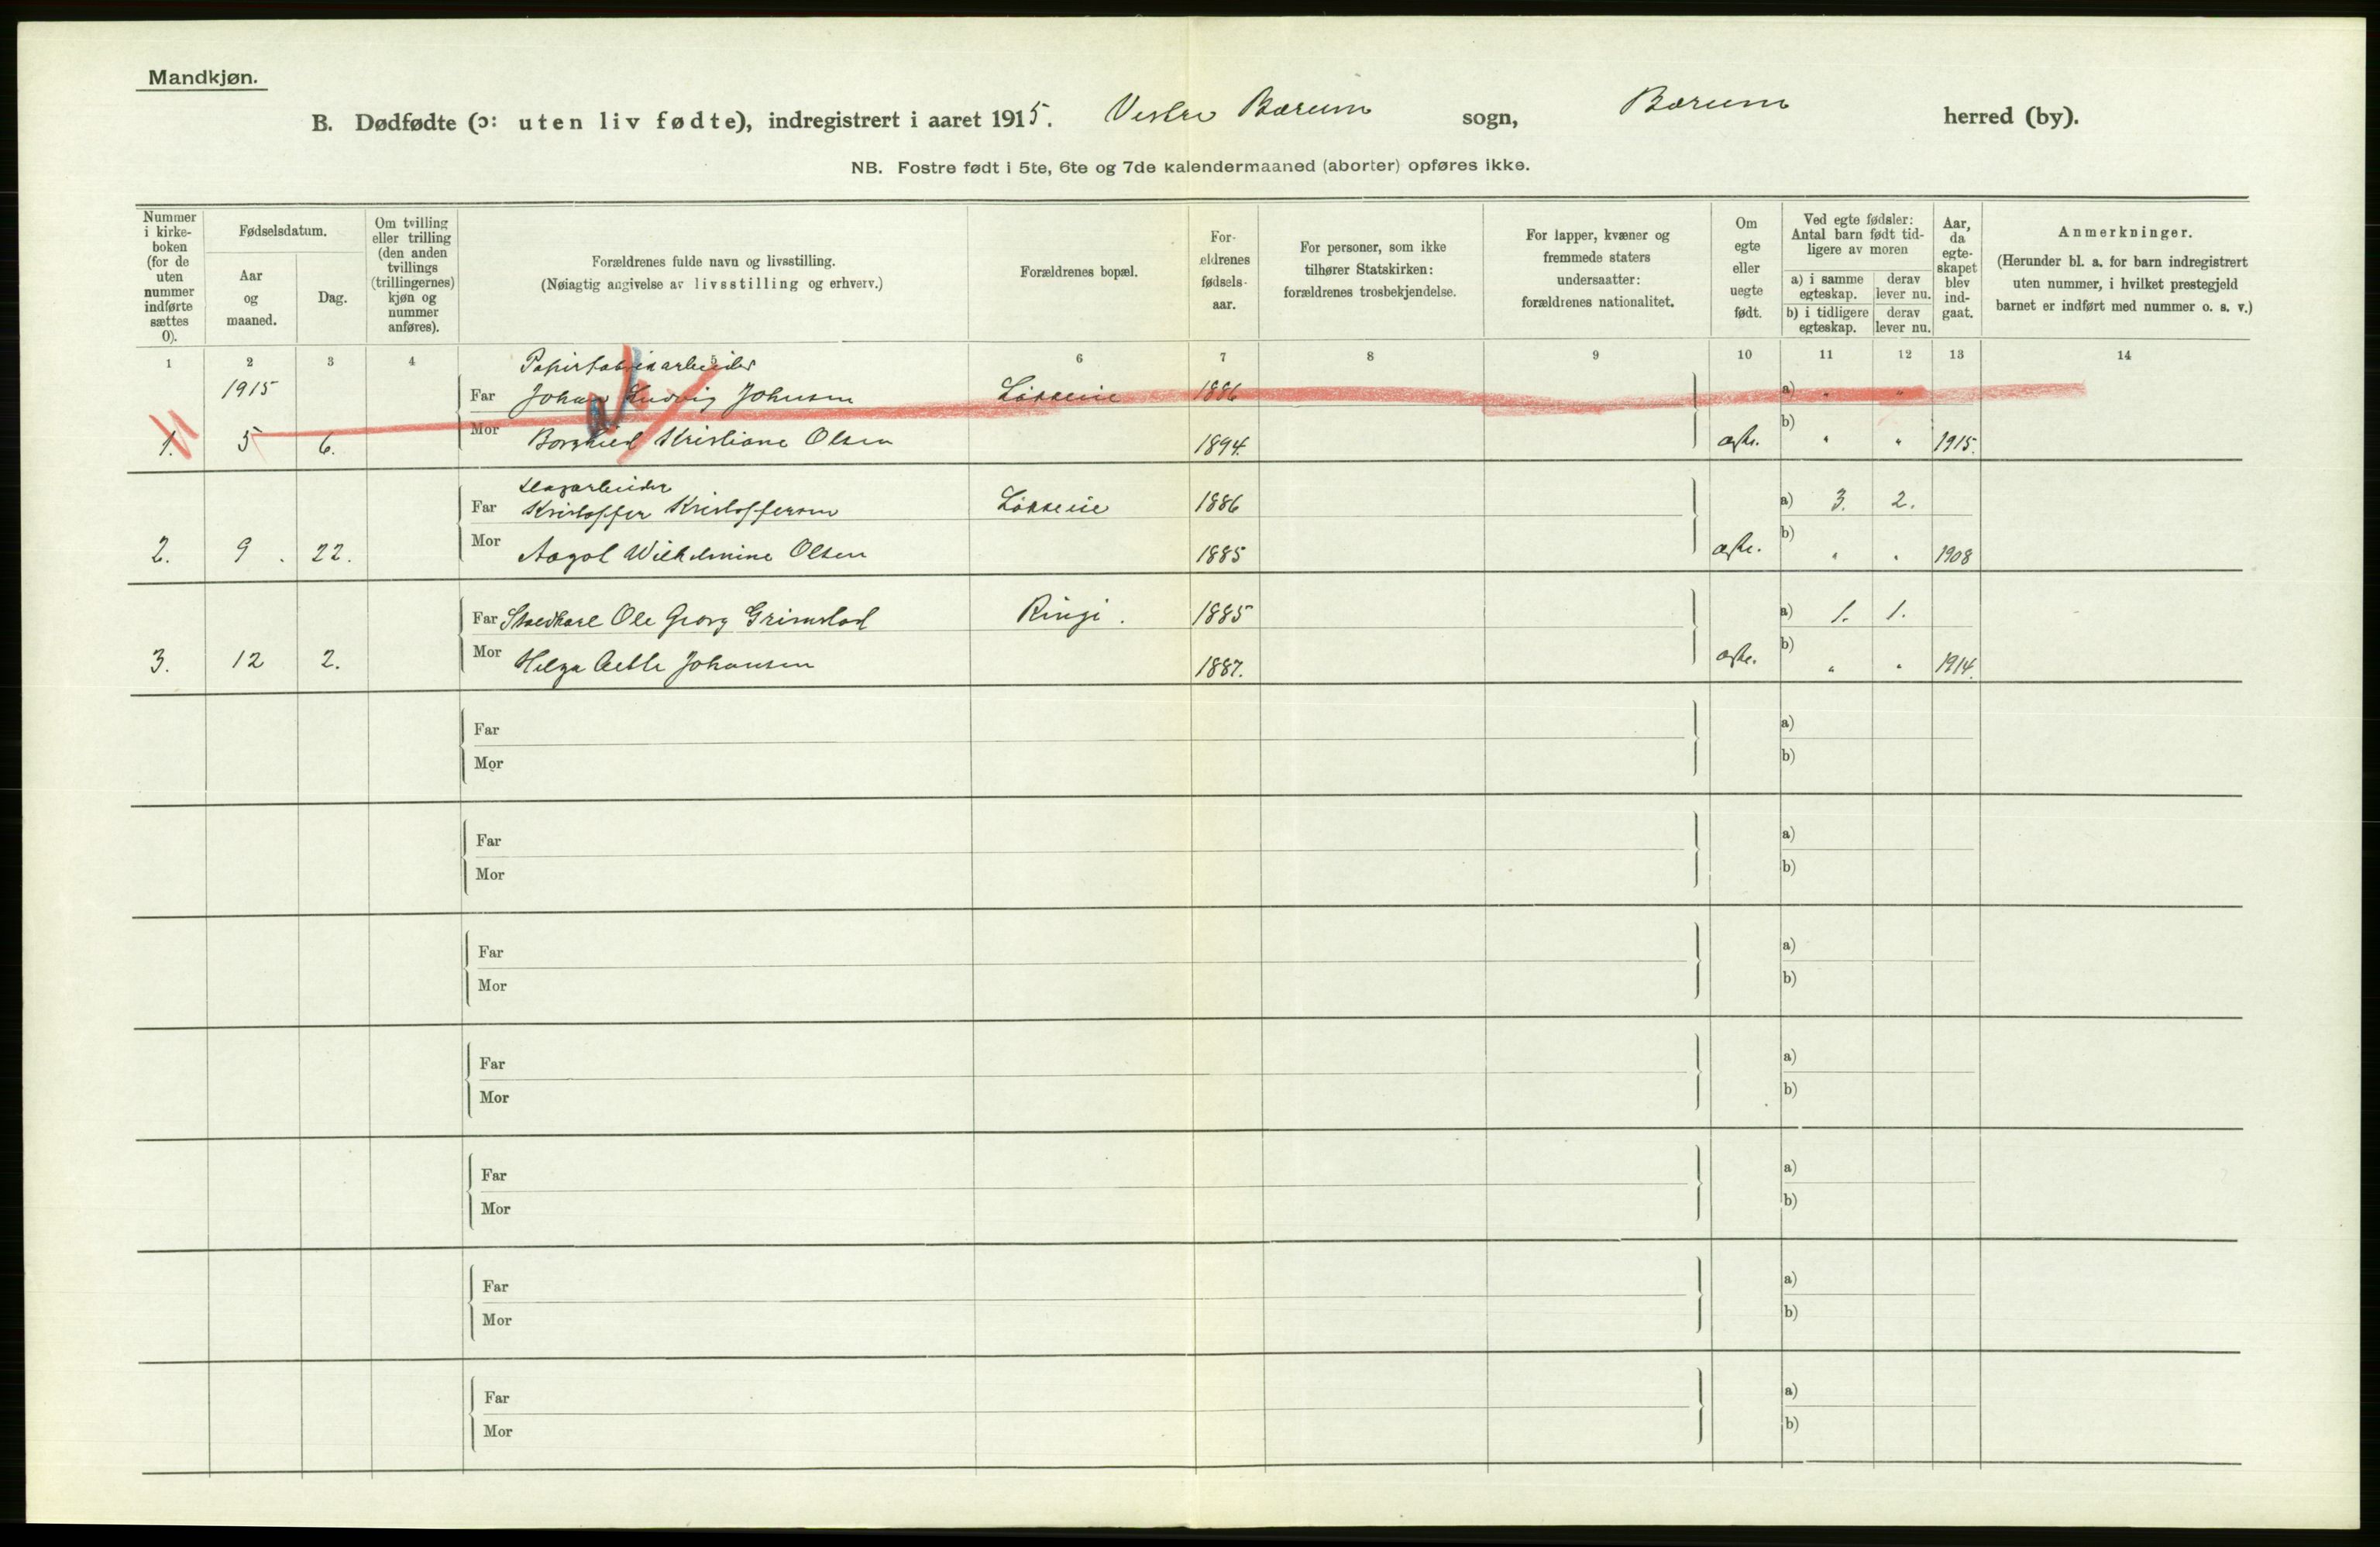 Mandkjøn.
B. Dødfødte (ɔ: uten liv fødte), indregistrert i aaret 1915. Vestre Bærum sogn, Bærum herred (by).
NB. Fostre født i 5te, 6te og 7de kalendermaaned (aborter) opføres ikke.
Nummer i kirke-boken (for de uten nummer indførte sættes 0).
Fødselsdatum.
Aar og maaned.
Dag.
Om tvilling eller trilling (den anden tvillings (trillingernes) kjøn og nummer anføres).
Forældrenes fulde navn og livsstilling.
(Nøiagtig angivelse av livsstilling og erhverv.)
Forældrenes bopæl.
For-ældrenes fødsels-aar.
For personer, som ikke tilhører Statskirken: forældrenes trosbekjendelse.
For lapper, kvæner og fremmede staters undersaatter: forældrenes nationalitet.
Om egte eller uegte født.
Ved egte fødsler: Antal barn født tid-ligere av moren
a) i samme egteskap.
derav lever nu.
b) i tidligere egteskap.
derav lever nu.
Aar, da egte-skapet blev ind-gaat.
Anmerkninger.
(Herunder bl. a. for barn indregistrert uten nummer, i hvilket prestegjeld barnet er indført med nummer o. s. v.)
1 2 3 4 5 6 7 8 9 10 11 12 13 14
Papirfabrikarbeider
1915 Far Johan Ludvig Johnsen Løkkeie 1886 a) " "
1. 5 6. Mor Borghild Kristiane Olsen 1894. ægte. b) " " 1915.
Dagarbeider
Far Kristoffer Kristoffersen Løkkeie 1886 a) 3. 2.
2. 9. 22. Mor Aagot Wilhelmine Olsen 1885 ægte. b) " " 1908
Far Staldkarl Ole Georg Grimstad Ringi. 1885 a) 1. 1.
3. 12 2. Mor Helga Johansen 1887. ægte. b) " " 1914.
Far a)
Mor b)
Far a)
Mor b)
Far a)
Mor b)
Far a)
Mor b)
Far a)
Mor b)
Far a)
Mor b)
Far a)
Mor b)